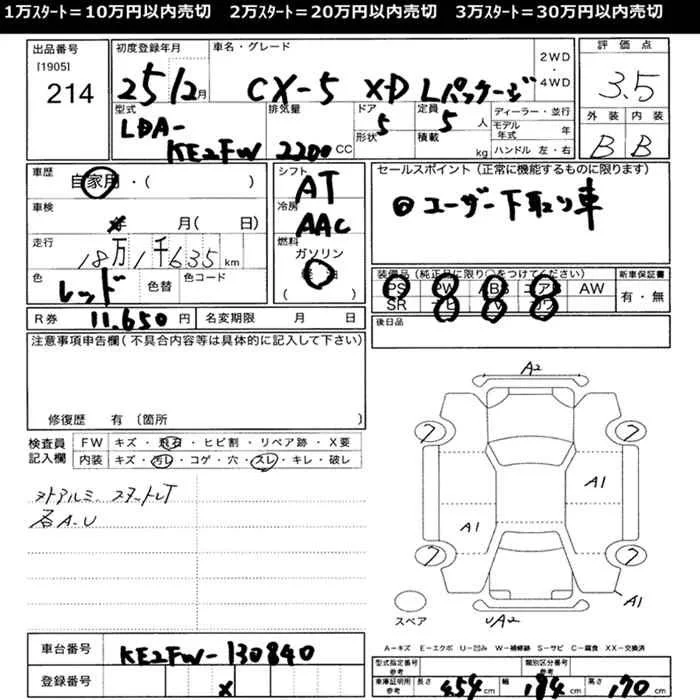 1万ｽﾀｰﾄ＝10万円以内売切　2万ｽﾀｰﾄ＝20万円以内売切　3万ｽﾀｰﾄ＝30万円以内売切
出品番号
[1905]
214
初度登録年月
25/2月
車名・グレード
CX-5 XD Lパッケージ
2WD
・
4WD
評価点
3.5
外装 内装
B B
型式
LDA-
KE2FW
排気量
2200CC
ドア
5
形状
定員
5人
積載
kg
ディーラー・並行
モデル年式 年
ハンドル 左・右
車歴
自家用・( )
車検
月( 日)
走行
18万1千635km
色
レッド
色替
色コード
シフト
AT
冷房
AAC
燃料
ガソリン
( )
セールスポイント（正常に機能するものに限ります）
◎ユーザー下取り車
装備品（純正品に限り○をつけてください）
PS PW ABS エアB AW
SR
新車保証書
有・無
後日品
R券 11,650円
名変期限 月 日
注意事項申告欄(不具合内容等は具体的に記入して下さい)
修復歴 有 〔箇所 〕
検査員
記入欄
FW キズ・飛石・ヒビ割・リペア跡・X要
内装 キズ・汚レ・コゲ・穴・スレ・キレ・破レ
ソトアルミ、スマートレT
各A-U
A2
7
7
A1
A1
7
7
A1
UA2
スペア
A－キズ E－エクボ U－凹み W－補修跡 S－サビ C－腐食 XX－交換済
車台番号 KE2FW-130840
登録番号 X
型式指定番号
参考
類別区分番号
参考
車庫証明用
参考
長さ 454cm 幅 184cm 高さ 170cm